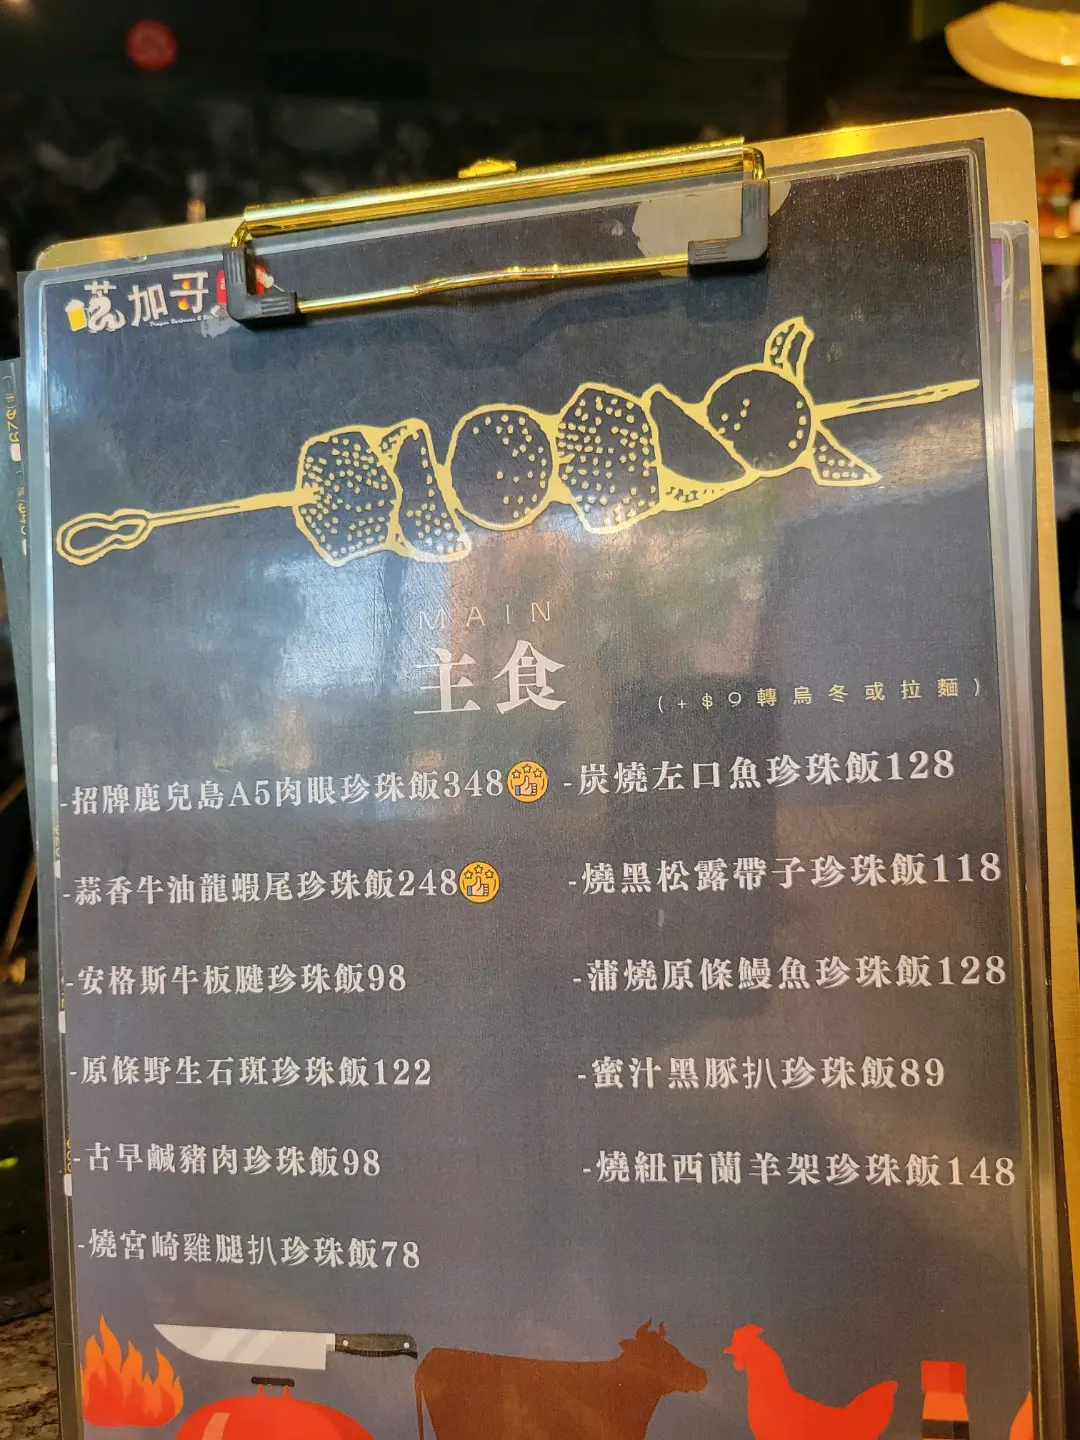 加哥
MAIN
主食
(+$9轉烏冬或拉麵)
-招牌鹿兒島A5肉眼珍珠飯348
-蒜香牛油龍蝦尾珍珠飯248
-安格斯牛板腱珍珠飯98
-原條野生石斑珍珠飯122
-古早鹹豬肉珍珠飯98
-燒宮崎雞腿扒珍珠飯78
-炭燒左口魚珍珠飯128
-燒黑松露帶子珍珠飯118
-蒲燒原條鰻魚珍珠飯128
-蜜汁黑豚扒珍珠飯89
-燒紐西蘭羊架珍珠飯148